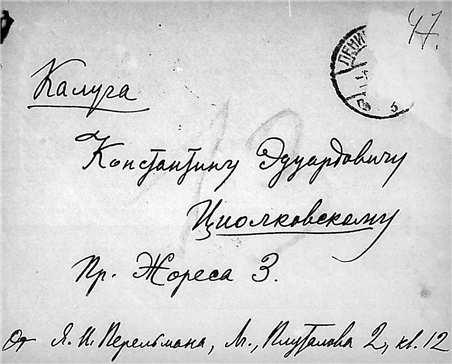 47.
ЛЕНИН
Калуга
Константину Эдуардовичу
Циолковскому
Пр. Жореса 3.
От Я. И. Перельмана, Л., Плуталова 2, кв. 12